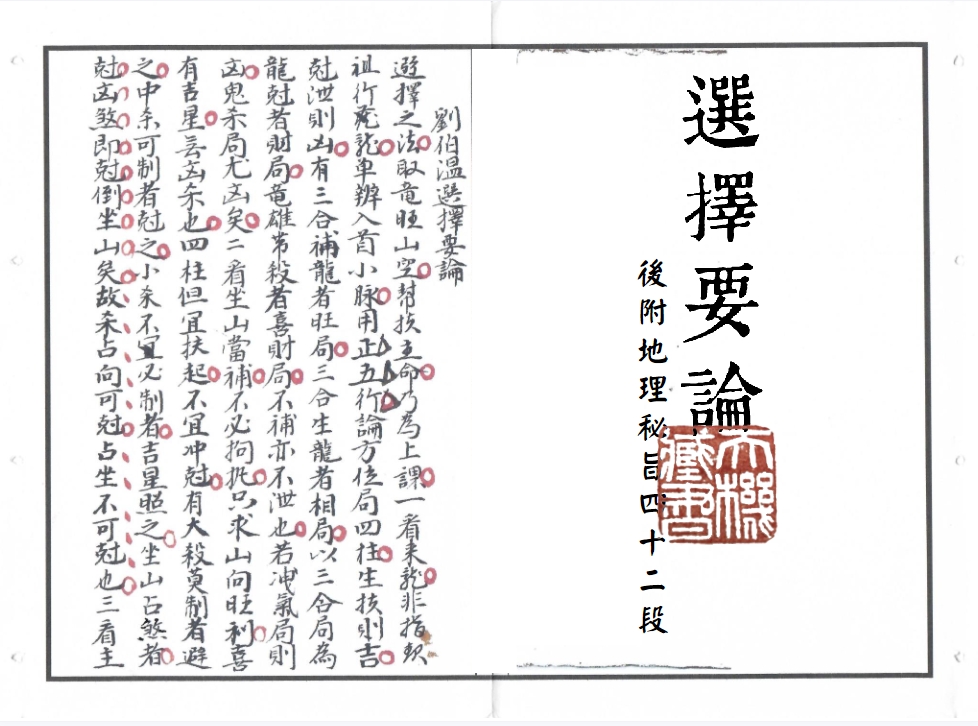 選擇要論
後附地理秘旨四十二段
天機
藏書
劉伯温選擇要論
選擇之法取竜旺山空幇扶主命乃為上課一看来龍非指䫒
祖行龍单辦入首小脉用正五行論方位局四柱生扶則吉
尅泄則凶有三合補龍者旺局三合生龍者相局以三合局為
龍尅者財局竜雄帯殺者喜財局不補亦不泄也若洩氣局則
凶鬼杀局尤凶矣二看坐山當補不必拘扤只求山向旺利喜
有吉星无凶杀也四柱但宜扶起不宜冲尅有大殺莫制者避
之中杀可制者尅之小杀不宜必制者吉星照之坐山占煞者
尅凶煞即尅倒坐山矣故杀占向可尅占坐不可尅也三看主